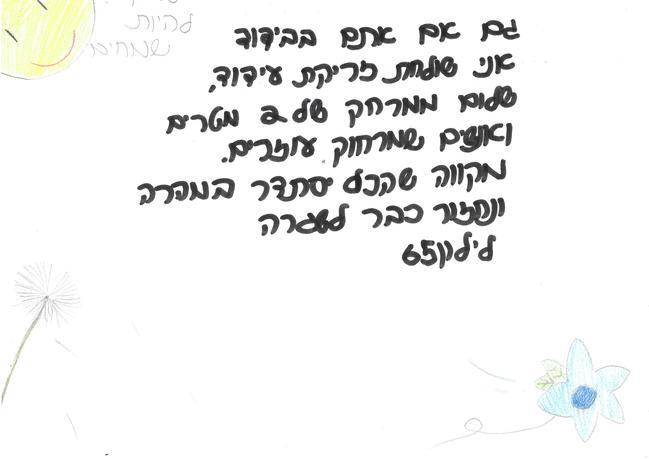 להיות
שמחים
גם אם אתם בבידוד
אני שולחת זריקת עידוד,
שלום ממרחק של 2 מטרים
ואנשים שמרחוק עוזרים.
מקווה שהכל יסתדר במהרה
ונחזור כבר לשגרה